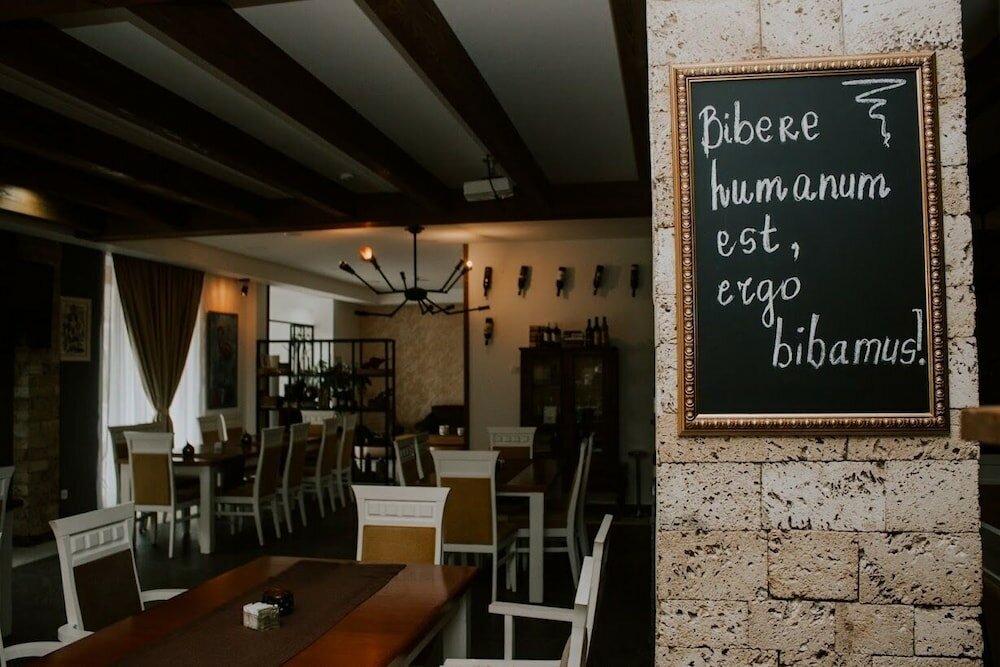 Bibere
humanum
est,
ergo
bibamus!